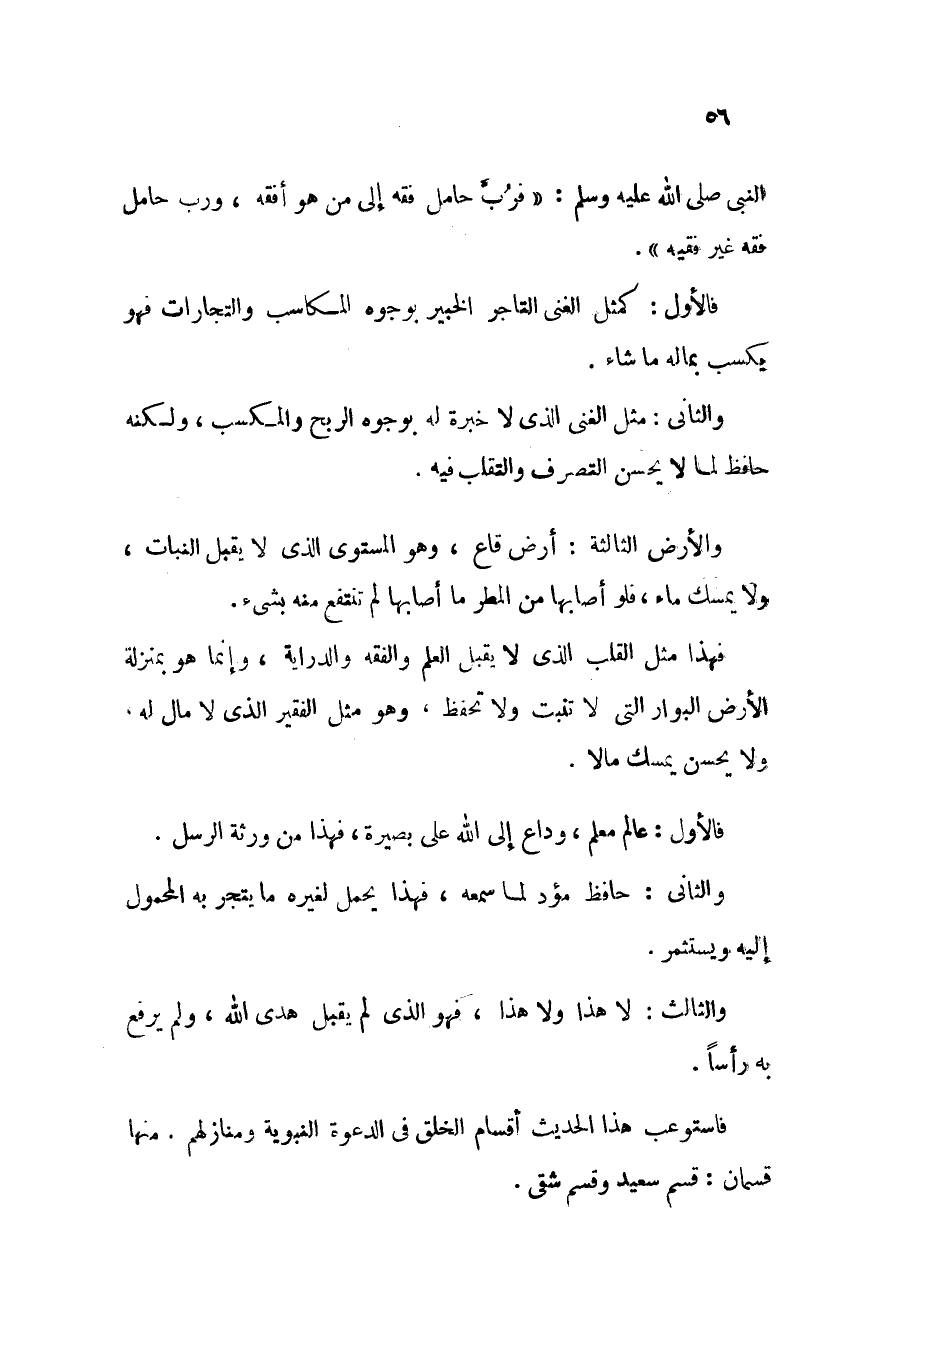 ٥٦
النبى صلى الله عليه وسلم : « فرُبَّ حامل فقه إلى من هو أفقه ، ورب حامل
فقه غير فقيه » .
فالأول : كمثل الغنى التاجر الخبير بوجوه المكاسب والتجارات فهو
يكسب بماله ما شاء .
والثانى : مثل الغنى الذى لا خبرة له بوجوه الربح والمكسب ، ولكنه
حافظ لما لا يحسن التصرف والتقلب فيه .
والأرض الثالثة : أرض قاع ، وهو المستوى الذى لا يقبل النبات ،
ولا يمسك ماء ، فلو أصابها من المطر ما أصابها لم تنتفع منه بشىء .
فهذا مثل القلب الذى لا يقبل العلم والفقه والدراية ، وإنما هو بمنزلة
الأرض البوار التى لا تنبت ولا تحفظ ، وهو مثل الفقير الذى لا مال له ،
ولا يحسن يمسك مالا .
فالأول : عالم معلم ، وداع إلى الله على بصيرة ، فهذا من ورثة الرسل .
والثانى : حافظ مؤد لما سمعه ، فهذا يحمل لغيره ما يتجر به المحمول
إليه ويستثمر .
والثالث : لا هذا ولا هذا ، فهو الذى لم يقبل هدى الله ، ولم يرفع
به رأساً .
فاستوعب هذا الحديث أقسام الخلق فى الدعوة النبوية ومنازلهم . منها
قسمان : قسم سعيد وقسم شقى .